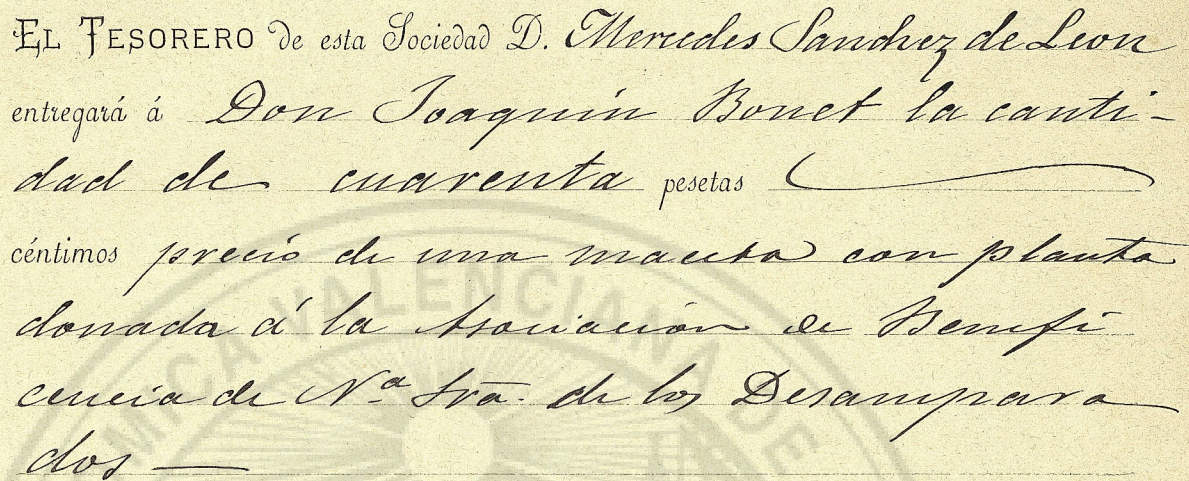 EL TESORERO de esta Sociedad D. Mercedes Sanchez de Leon
entregará á Don Joaquin Bonet la canti-
dad de cuarenta pesetas
céntimos precio de una maceta con planta
donada á la Asociación de Benefi
cencia de Nª Sra. de los Desampara
dos —
MICA VALENCIANA DE